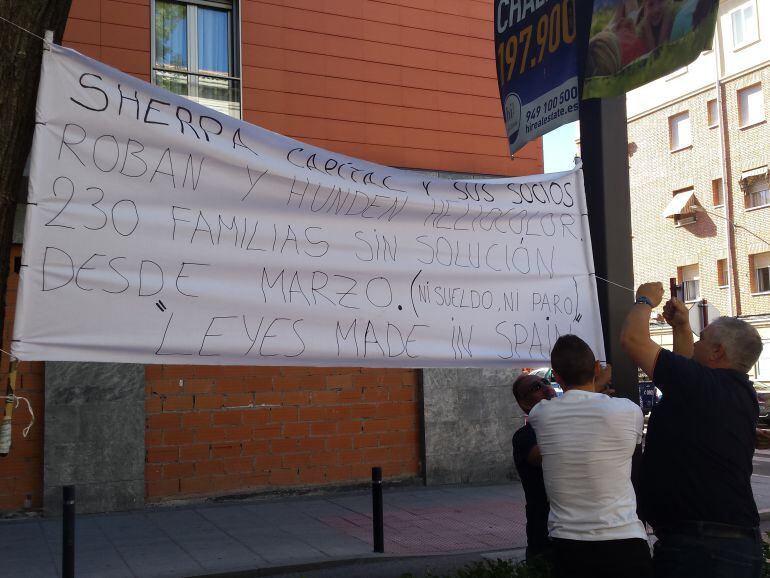 SHERPA CAPITAL Y SUS SOCIOS
ROBAN Y HUNDEN HELIOCOLOR.
230 FAMILIAS SIN SOLUCIÓN
DESDE MARZO. (NI SUELDO, NI PARO)
"LEYES MADE IN SPAIN"
197.900
949 100 500
hirealestate.es